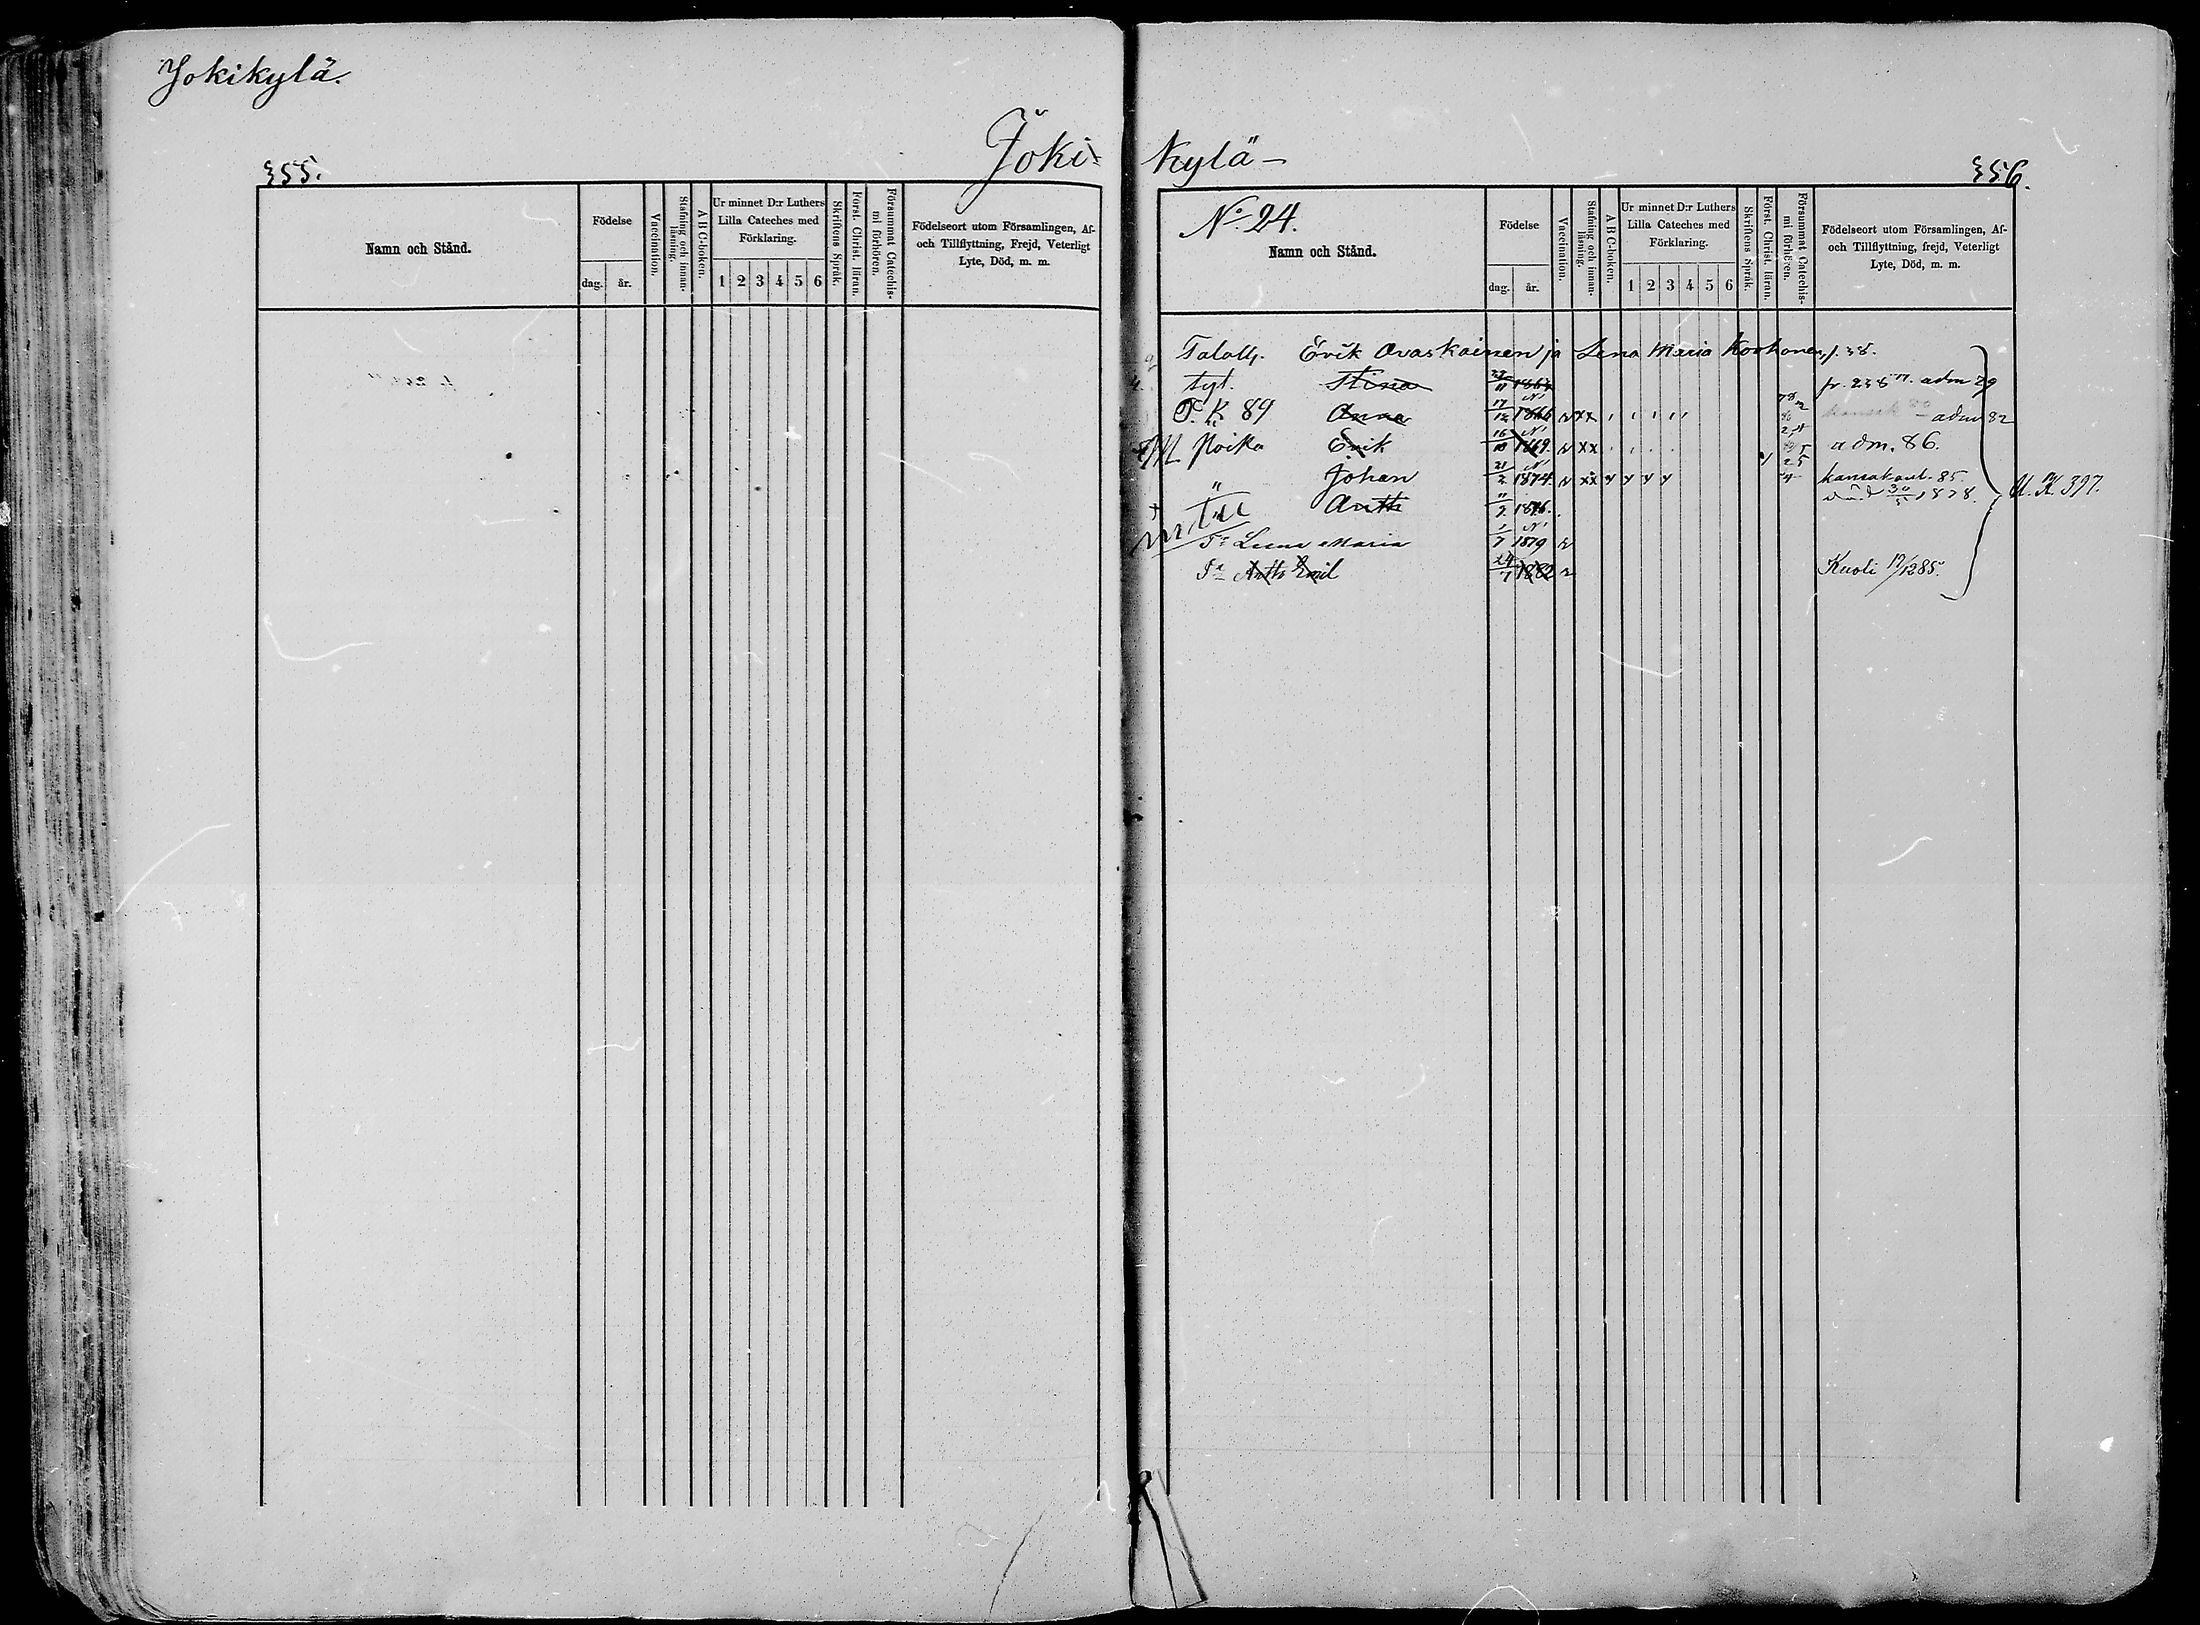 Jokikylä.
Joki- kylä-
355.
Namn och Stånd.
Födelse
dag. år.
Vaccination.
Stafning och innan-
läsning.
A B C-boken.
Ur minnet D:r Luthers
Lilla Cateches med
Förklaring.
1 2 3 4 5 6
Skriftens Språk.
Först. Christ. läran.
Försummat Catechis-
mi förhören.
Födelseort utom Församlingen, Af-
och Tillflyttning, Frejd, Veterligt
Lyte, Död, m. m.
356.
No. 24.
Namn och Stånd.
Födelse
dag. år.
Vaccination.
Stafning och innan-
läsning.
A B C-boken.
Ur minnet D:r Luthers
Lilla Cateches med
Förklaring.
1 2 3 4 5 6
Skriftens Språk.
Först. Christ. läran.
Försummat Catechis-
mi förhören.
Födelseort utom Församlingen, Af-
och Tillflyttning, frejd, Veterligt
Lyte, Död, m. m.
Erik Ovaskainen ja Lena Maria Korhonen, f. 38.
tyt. Stina fr. 238 adm 79
P. K. 89 Anna 17/12 1866 adm 82
Poika Erik 1869. adm. 86.
" Johan 21/2 1874 85.
Antti 1876. 1878. U. K. 397.
Tr Leena Maria 1/7 1879
Antti Emil 1882 Kuoli 17/12 85.